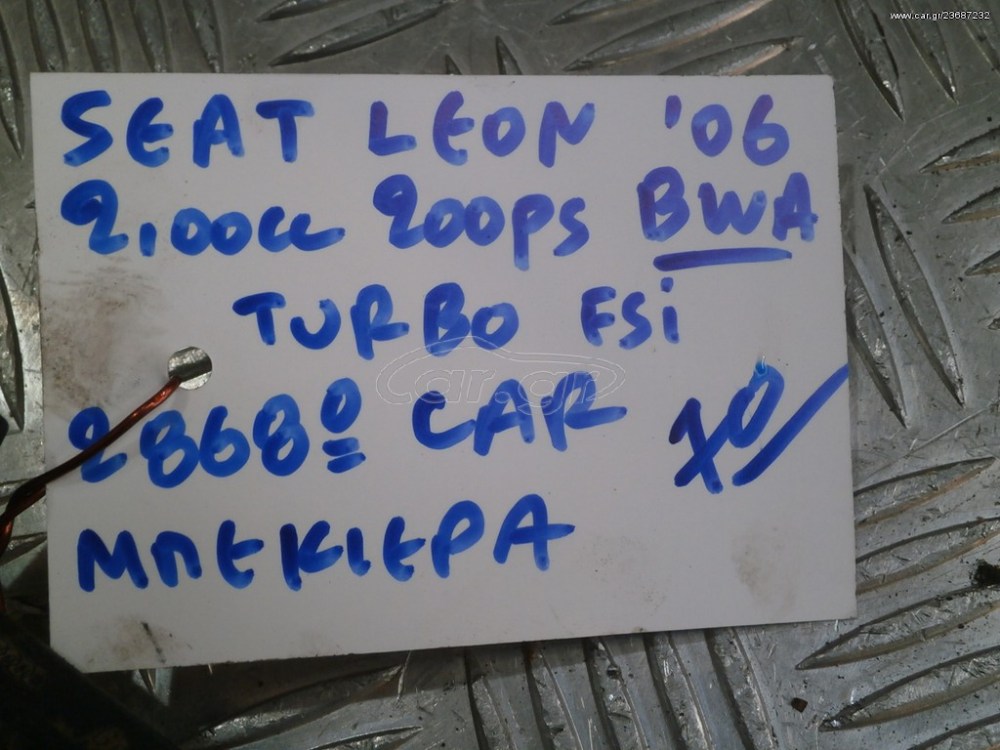 www.car.gr/23687232
SEAT LEON '06
2,00cc 200PS BWA
TURBO FSi
28680 CAR
ΜΠΕΚΙΕΡΑ